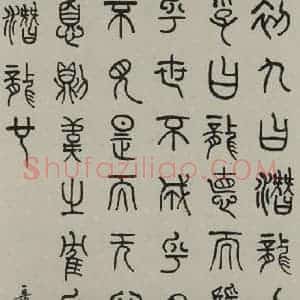 初九曰潛龍
子曰龍德而隱
乎世不成乎
不見是而无悶
憂則韋之隺
潛龍也
Shufaziliao.COM